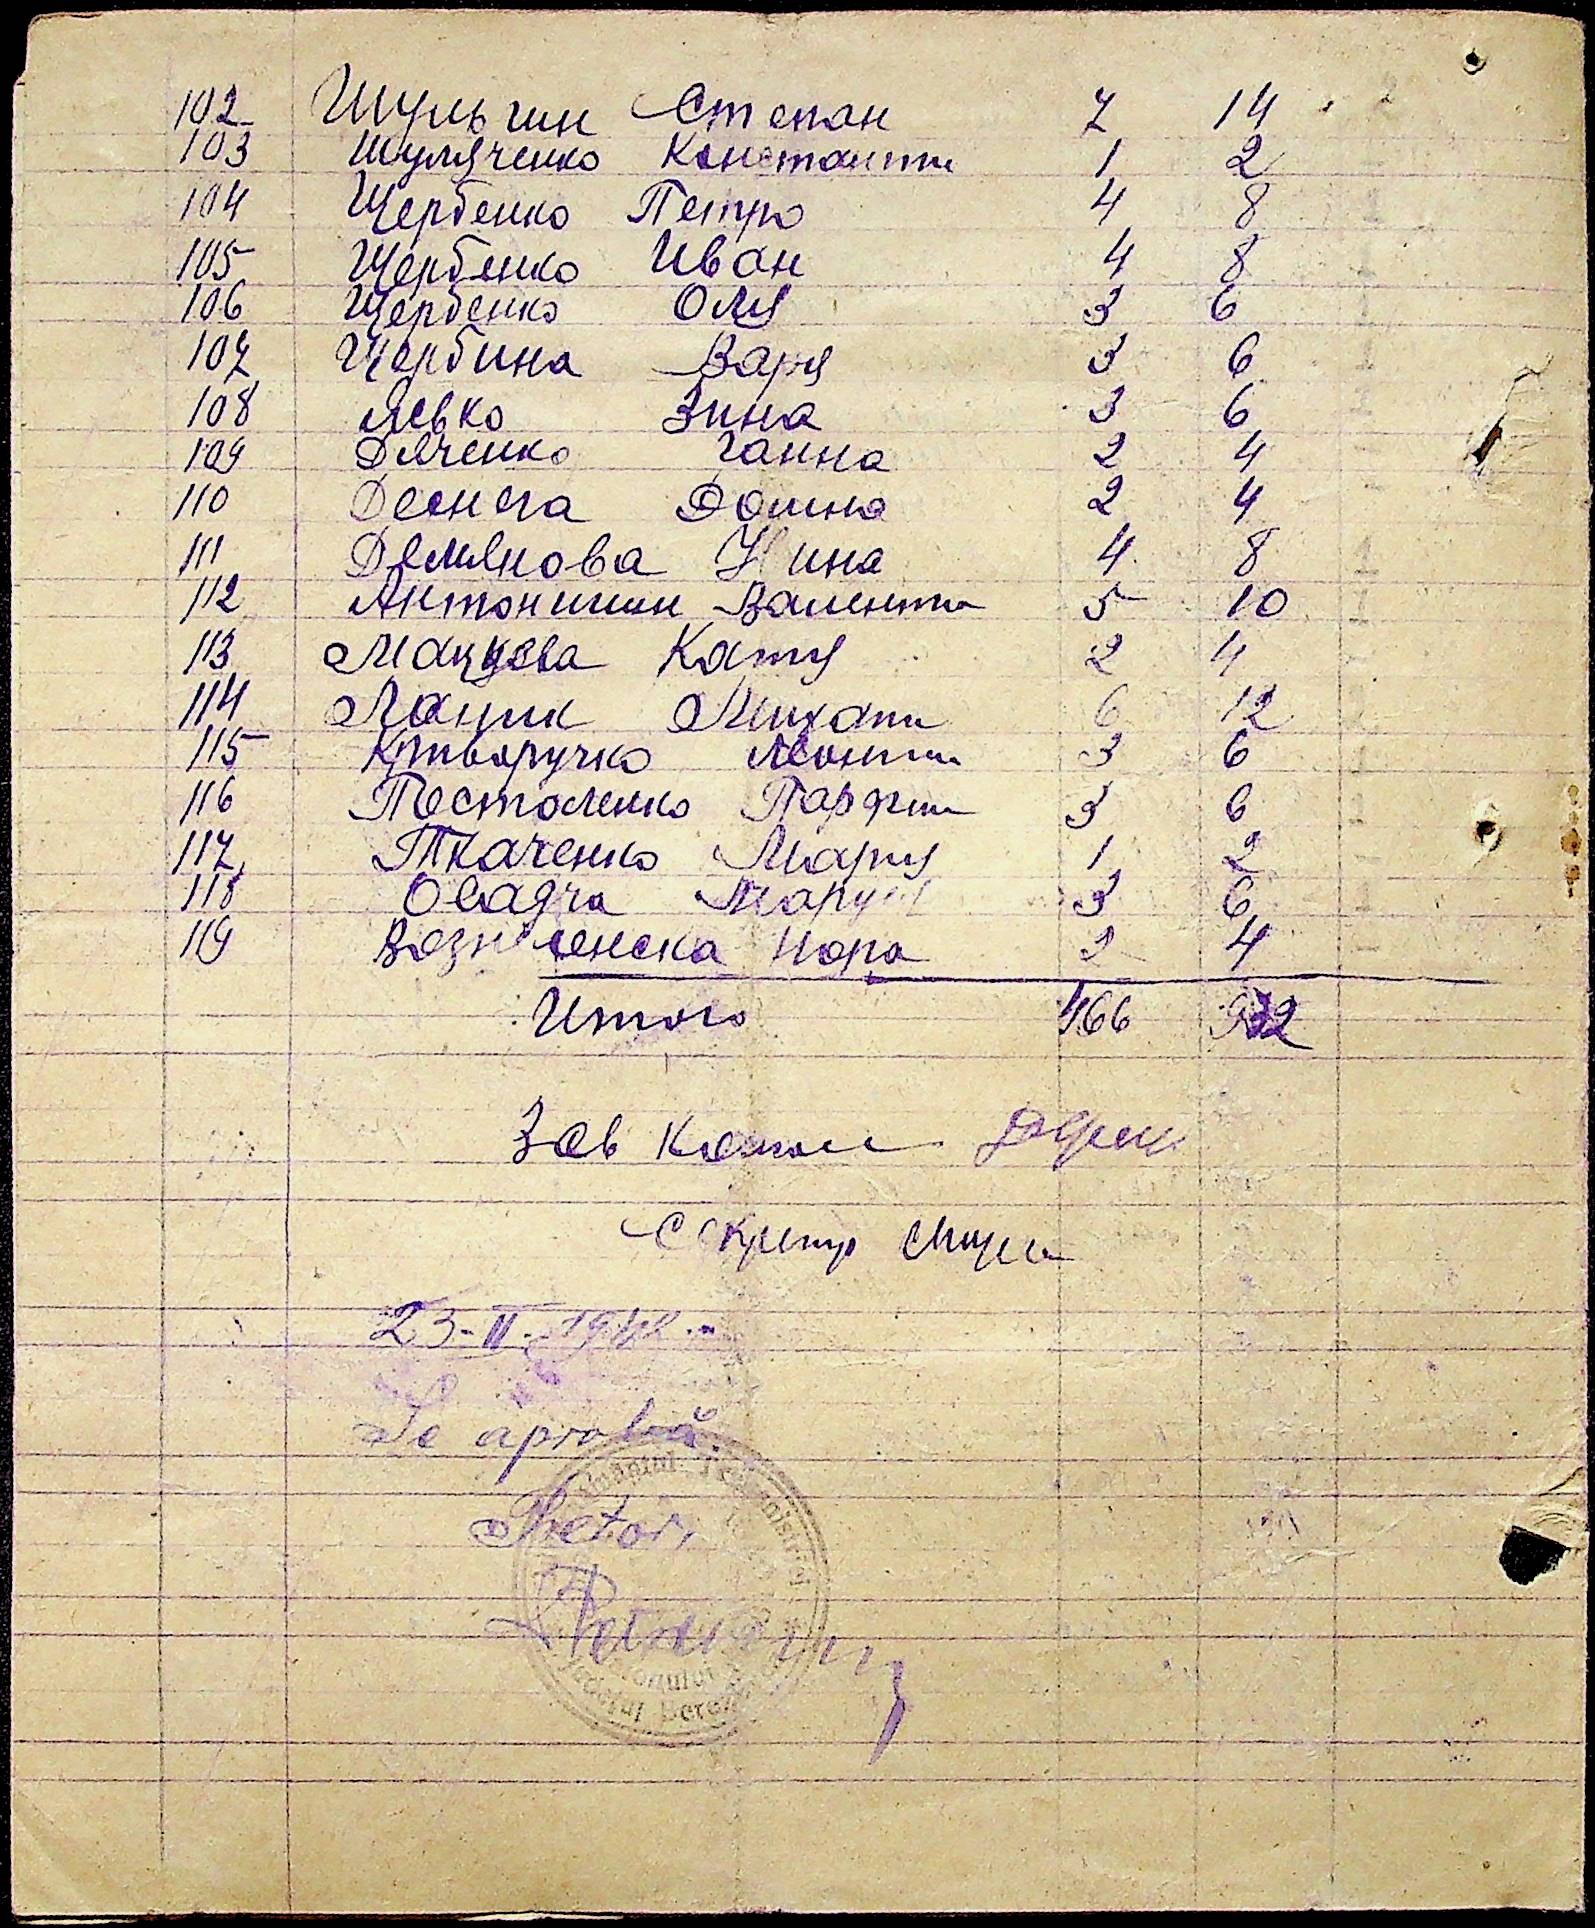 102 Шульгин Степан 7 14
103 Шуляченко Константин 1 2
104 Щербенко Петро 4 8
105 Щербенко Иван 4 8
106 Щербенко Оля 3 6
107 Щербина Варя 3 6
108 Левко Зина 3 6
109 Дяченко Ганна 2 4
110 Домна 2 4
111 Демянова Нина 4 8
112 Антонишин Валентин 5 10
113 Катя 2 4
114 Михаил 6 12
115 Леонтий 3 6
116 Парфин 3 6
117 Ткаченко Мария 1 2
118 Осадча 3 6
119 Вознесенска Нора 2 4
Итого 466 932
Зав
Секретр
23-II-1942
Se aprobă
Pretor,
Județul Berezovca